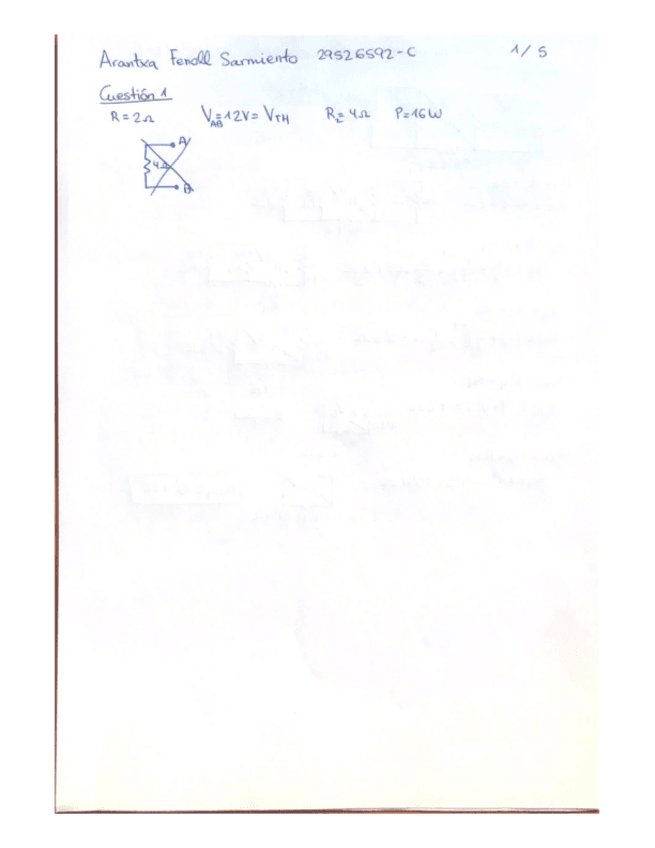 Arantxa Fenoll Sarmiento 29526592-C 1/5
Cuestión 1
R=2Ω V_AB=12V=V_TH R_L=4Ω P=16W
A
4Ω
B